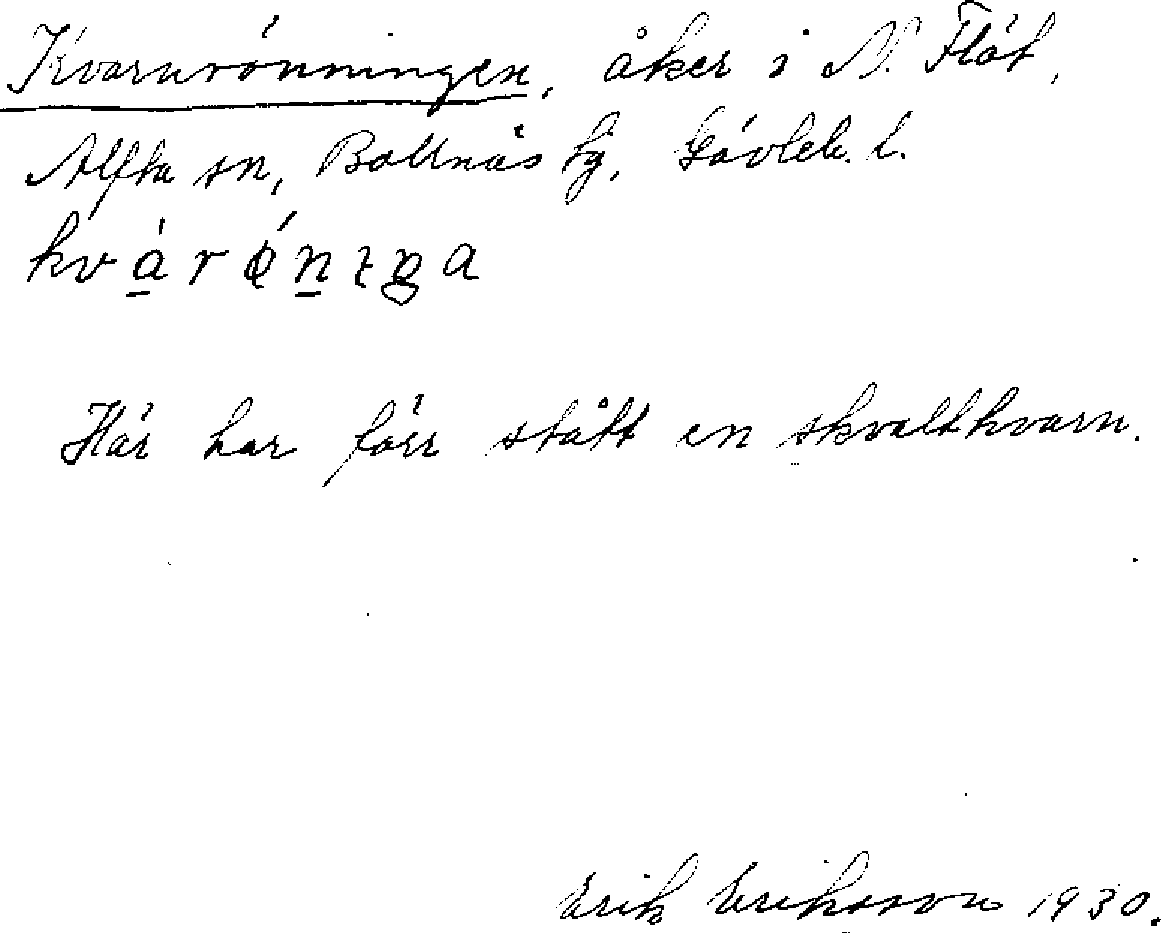 Kvarnrönningen, åker i N. Flät,
Alfta sn, Bollnäs tg, Gävleb. l.
Här har förr stått en skvaltkvarn.
Erik Eriksson 1930.